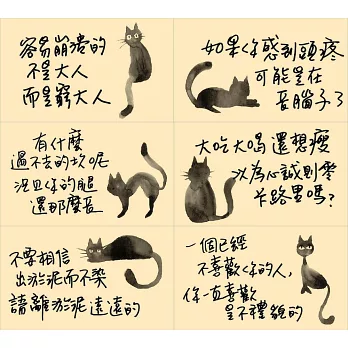 容易崩潰的
不是大人
而是窮大人
如果你感到頭疼
可能是在
長腦子了
有什麼
過不去的坎呢
況且你的腿
還那麼長
大吃大喝還想瘦
以為心誠則零
卡路里嗎?
不要相信
出淤泥而不染
請離淤泥遠遠的
一個已經
不喜歡你的人,
你一直喜歡
是不禮貌的